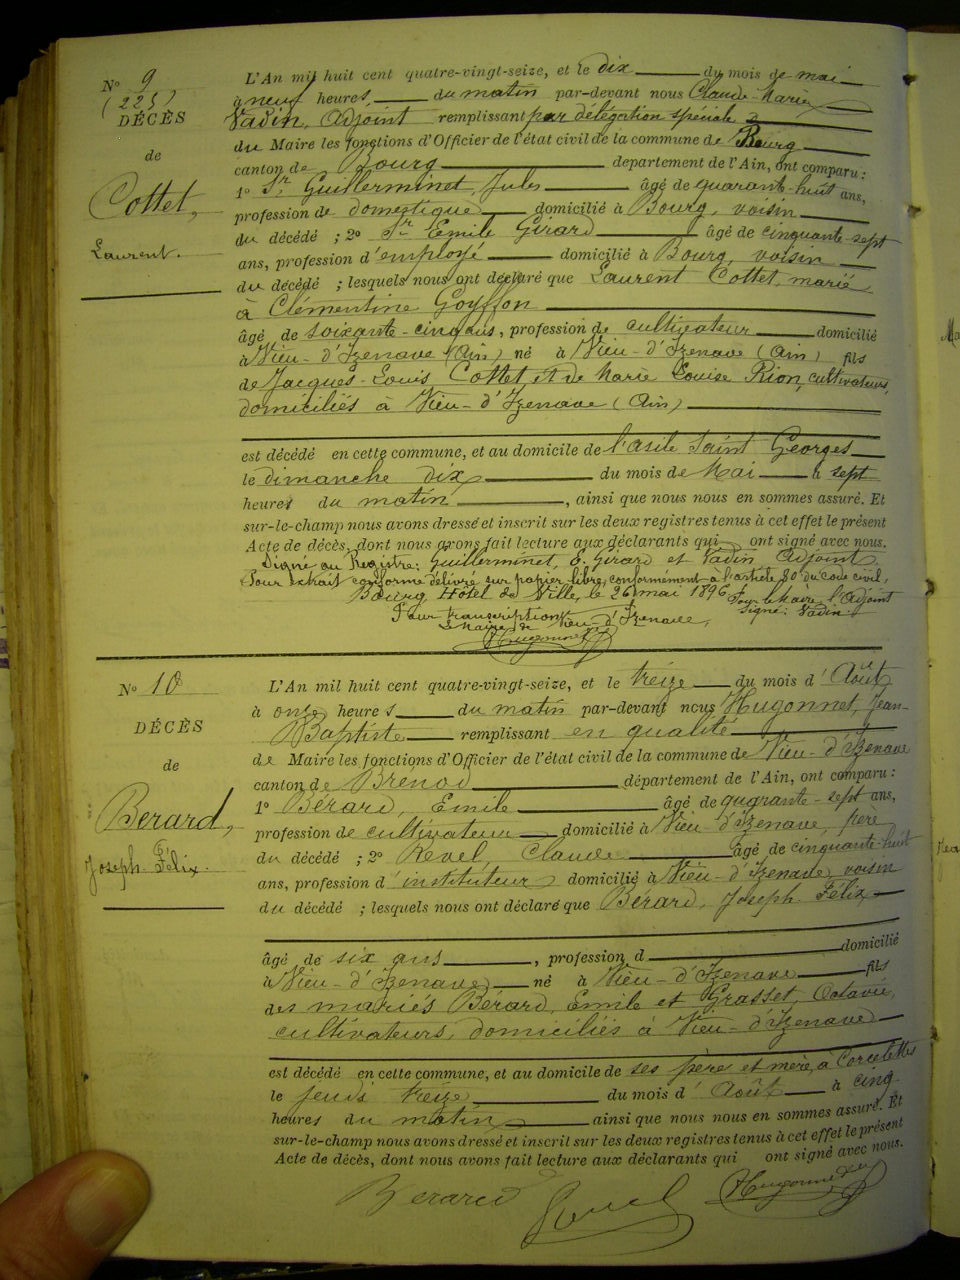 N° 9
(225)
DÉCÈS
de
Cottet,
Laurent.
L'An mil huit cent quatre-vingt-seize, et le dix du mois de mai
à neuf heures, du matin par-devant nous Claude-Marie
Vadin, Adjoint remplissant par délégation spéciale
du Maire les fonctions d'Officier de l'état civil de la commune de Bourg
canton de Bourg departement de l'Ain, ont comparu :
1° Sr Guillerminet, Jules âgé de quarante-huit ans,
profession de domestique domicilié à Bourg, voisin
du décédé ; 2° Sr Emile Girard âgé de cinquante-sept
ans, profession d'employé domicilié à Bourg, voisin
du décédé ; lesquels nous ont déclaré que Laurent Cottet, marié
à Clémentine Goyffon
âgé de soixante-cinq ans, profession de cultivateur domicilié
à Vieu-d'Izenave (Ain) né à Vieu-d'Izenave (Ain) fils
de Jacques-Louis Cottet et de Marie Louise Rion, cultivateurs,
domiciliés à Vieu-d'Izenave (Ain)
est décédé en cette commune, et au domicile de l'asile Saint Georges
le dimanche dix du mois de Mai à sept
heures du matin, ainsi que nous nous en sommes assuré. Et
sur-le-champ nous avons dressé et inscrit sur les deux registres tenus à cet effet le présent
Acte de décès, dont nous avons fait lecture aux déclarants qui ont signé avec nous.
Signé au Registre: Guillerminet, E. Girard et Vadin Adjoint.
Pour extrait conforme délivré sur papier libre, conformément à l'article 80 du code civil,
Bourg Hôtel de Ville, le 26 mai 1896 Pour le Maire, l'Adjoint
Signé: Vadin.
Pour transcription
Le Maire de Vieu-d'Izenave,
Hugonnet
N° 10
DÉCÈS
de
Berard,
Joseph-Félix.
L'An mil huit cent quatre-vingt-seize, et le treize du mois d'Août
à onze heures du matin par-devant nous Hugonnet, Jean-
Baptiste remplissant en qualité
de Maire les fonctions d'Officier de l'état civil de la commune de Vieu-d'Izenave
canton de Brenod département de l'Ain, ont comparu :
1° Bérard, Emile âgé de quarante-sept ans,
profession de cultivateur domicilié à Vieu-d'Izenave, père
du décédé ; 2° Revel, Claude âgé de cinquante-huit
ans, profession d'instituteur domicilié à Vieu-d'Izenave, voisin
du décédé ; lesquels nous ont déclaré que Bérard, Joseph Félix
âgé de six ans, profession d domicilié
à Vieu-d'Izenave né à Vieu-d'Izenave fils
des mariés Bérard, Emile et Grasset, Octavie,
cultivateurs, domiciliés à Vieu-d'Izenave
est décédé en cette commune, et au domicile de ses père et mère, à Corcelettes
le jeudi treize du mois d'Août à cinq
heures du matin ainsi que nous nous en sommes assuré. Et
sur-le-champ nous avons dressé et inscrit sur les deux registres tenus à cet effet le présent
Acte de décès, dont nous avons fait lecture aux déclarants qui ont signé avec nous.
Berard Revel Hugonnet